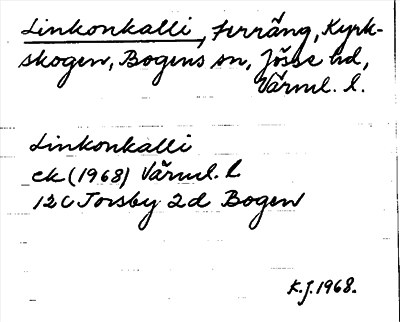 Linkonkalli, terräng, Kyrk-
skogen, Bogens sn, Jösse hd,
Värml. l.
Linkonkalli
ek (1968) Värml. l
12C Torsby 2d Bogen
K.J. 1968.